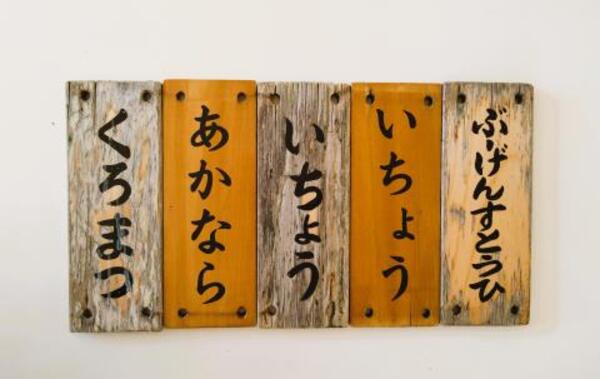 ぶーげんすとうひ
いちょう
いちょう
あかなら
くろまつ